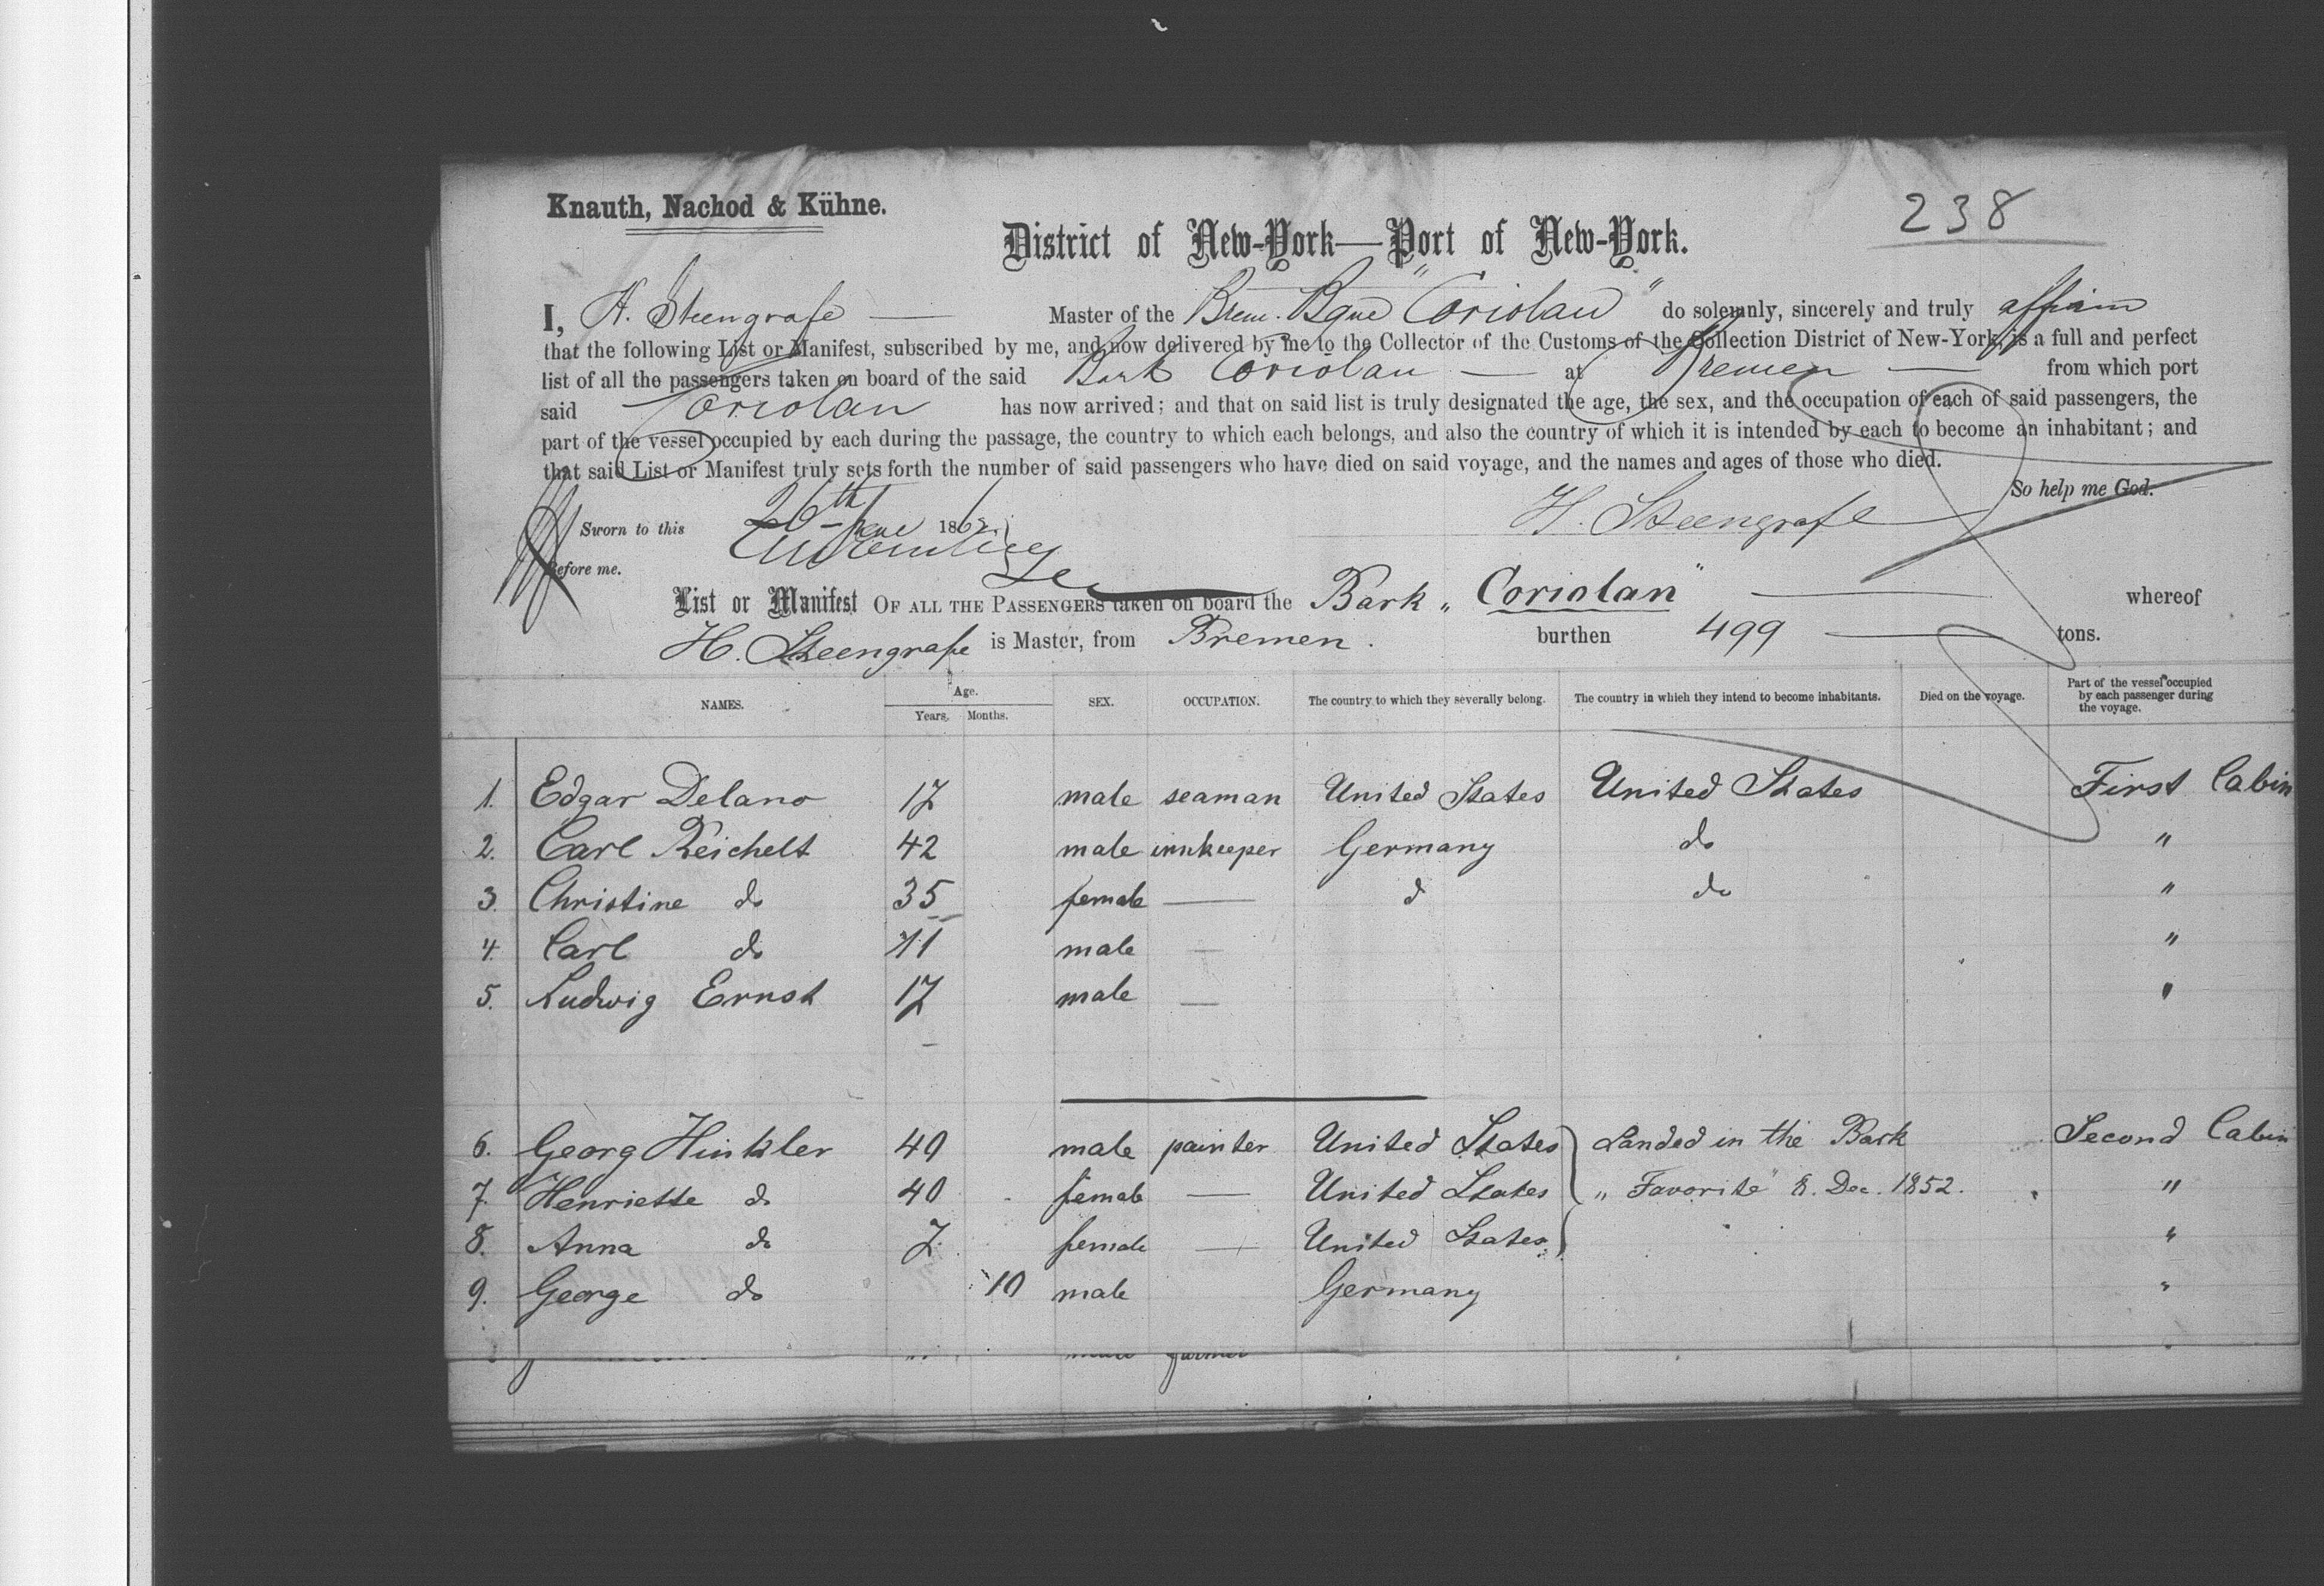 Knauth, Nachod & Kühne.
238
District of New-York—Port of New-York.
I, H. Steengrafe — Master of the Brem. Bque "Coriolan" do solemnly, sincerely and truly affirm
that the following List or Manifest, subscribed by me, and now delivered by me to the Collector of the Customs of the Collection District of New-York, is a full and perfect
list of all the passengers taken on board of the said Bark Coriolan — at Bremen — from which port
said Coriolan has now arrived; and that on said list is truly designated the age, the sex, and the occupation of each of said passengers, the
part of the vessel occupied by each during the passage, the country to which each belongs, and also the country of which it is intended by each to become an inhabitant; and
that said List or Manifest truly sets forth the number of said passengers who have died on said voyage, and the names and ages of those who died.
So help me God.
Sworn to this 26th June 1862 H. Steengrafe
Before me.
List or Manifest OF ALL THE PASSENGERS taken on board the Bark „ Coriolan" — whereof
H. Steengrafe is Master, from Bremen. burthen 499 — tons.
NAMES. Age. Years. Months. SEX. OCCUPATION. The country to which they severally belong. The country in which they intend to become inhabitants. Died on the voyage. Part of the vessel occupied by each passenger during the voyage.
1. Edgar Delano 17 male seaman United States United States First Cabin
2. Carl Reichelt 42 male innkeeper Germany do "
3. Christine do 35 female — d do "
4. Carl do 11 male — "
5. Ludwig Ernst 17 male — "
6. Georg Hinkler 49 male painter United States Landed in the Bark Second Cabin
7. Henriette do 40 female — United States „ Favorite" 8. Dec. 1852. "
8. Anna do 7 female — United States "
9. George do 10 male Germany "